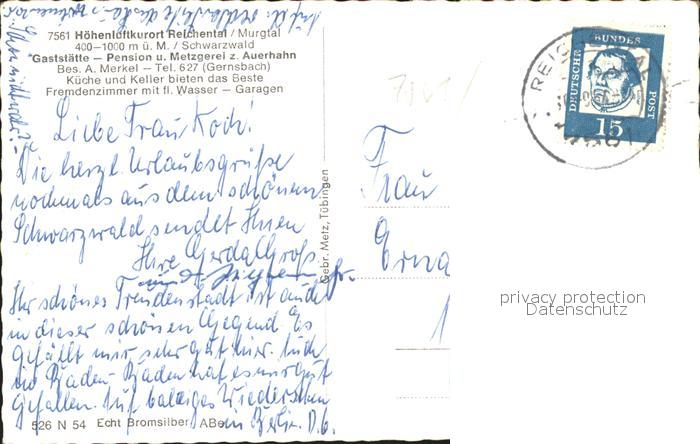 7561 Höhenluftkurort Reichental / Murgtal
400–1000 m ü. M. / Schwarzwald
Gaststätte – Pension u. Metzgerei z. Auerhahn
Bes. A. Merkel – Tel. 627 (Gernsbach)
Küche und Keller bieten das Beste
Fremdenzimmer mit fl. Wasser – Garagen
Liebe Frau Koch!
Die herzl. Urlaubsgrüße
nochmals aus dem schönen
Schwarzwald sendet Ihnen
Ihre Gerda Groß
Ihr schönes Freudenstadt ist auch
in dieser schönen Gegend. Es
gefällt mir sehr gut hier. Auch
in Baden-Baden hat es mir gut
gefallen. Auf baldiges Wiedersehen
in Berlin. D.O.
526 N 54 Echt Bromsilber ABe
Gebr. Metz, Tübingen
Frau
Erna
DEUTSCHE BUNDES POST
15
privacy protection
Datenschutz